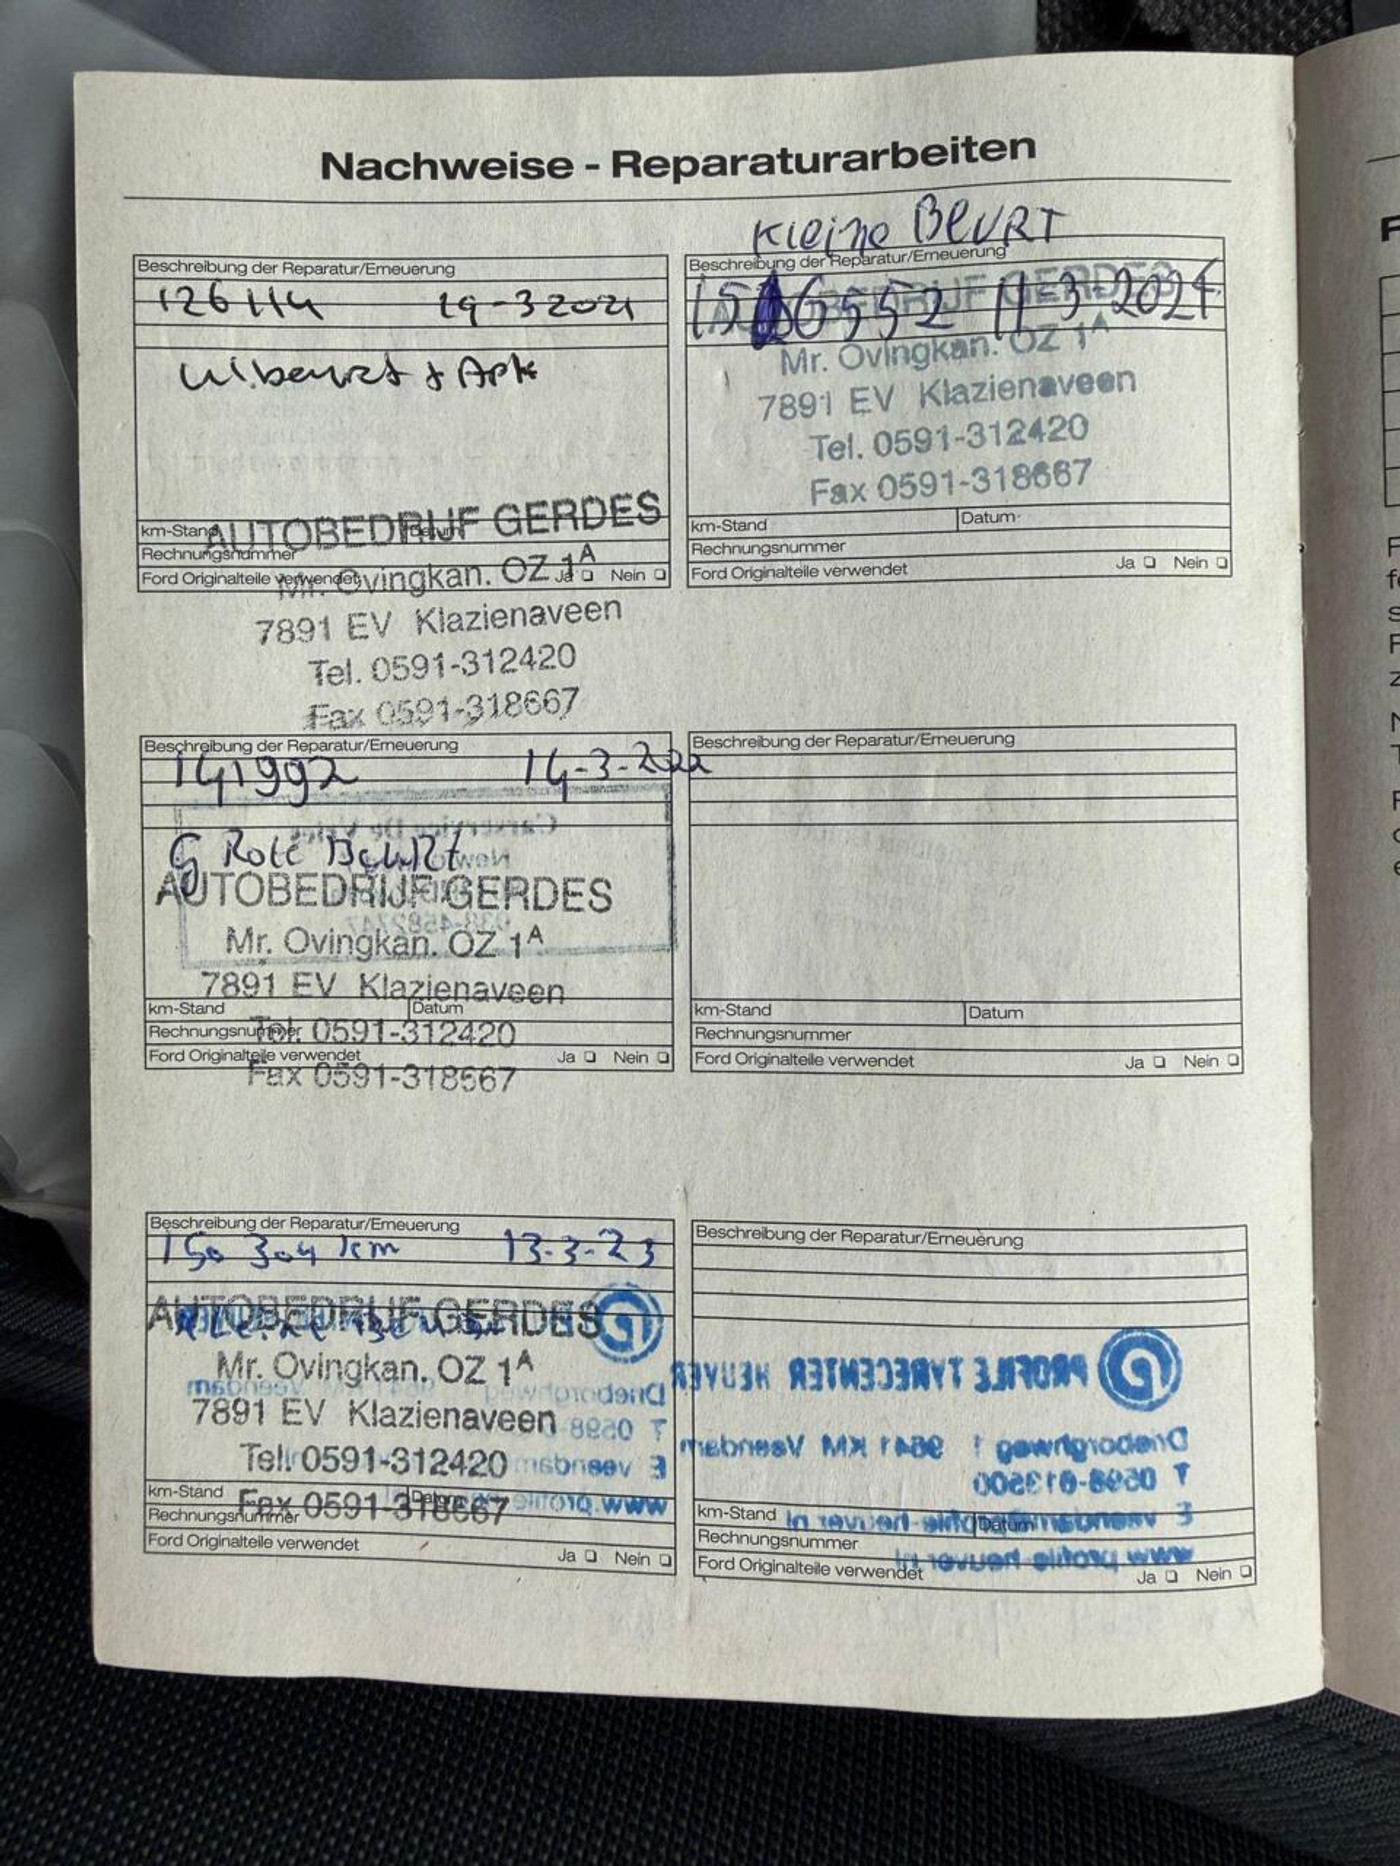 Nachweise - Reparaturarbeiten
Beschreibung der Reparatur/Erneuerung
126114 19-3 2021
kl.beurt + Apk
AUTOBEDRIJF GERDES
km-Stand
Rechnungsnummer
Mr. Ovingkan. OZ 1A
Ford Originalteile verwendet Ja Nein
7891 EV Klazienaveen
Tel. 0591-312420
Fax 0591-318667
Kleine BEURT
Beschreibung der Reparatur/Erneuerung
AUTOBEDRIJF GERDES
6552 11-3-2024
Mr. Ovingkan. OZ 1A
7891 EV Klazienaveen
Tel. 0591-312420
Fax 0591-318667
km-Stand Datum
Rechnungsnummer
Ford Originalteile verwendet Ja Nein
Beschreibung der Reparatur/Erneuerung
141992 14-3-2022
GRote BeuRt
AUTOBEDRIJF GERDES
Mr. Ovingkan. OZ 1A
7891 EV Klazienaveen
km-Stand Datum
Rechnungsnummer
Tel. 0591-312420
Ford Originalteile verwendet Ja Nein
Fax 0591-318667
Beschreibung der Reparatur/Erneuerung
km-Stand Datum
Rechnungsnummer
Ford Originalteile verwendet Ja Nein
Beschreibung der Reparatur/Erneuerung
150 304 km 13-3-23
AUTOBEDRIJF GERDES
Mr. Ovingkan. OZ 1A
7891 EV Klazienaveen
Tel. 0591-312420
km-Stand Datum
Fax 0591-318667
Rechnungsnummer
Ford Originalteile verwendet Ja Nein
Beschreibung der Reparatur/Erneuerung
PROFILE TYRECENTER HEUVER
Drieborghweg 1 9641 KM Veendam
T 0598-613500
E veendam@profile-heuver.nl
www.profile-heuver.nl
km-Stand Datum
Rechnungsnummer
Ford Originalteile verwendet Ja Nein